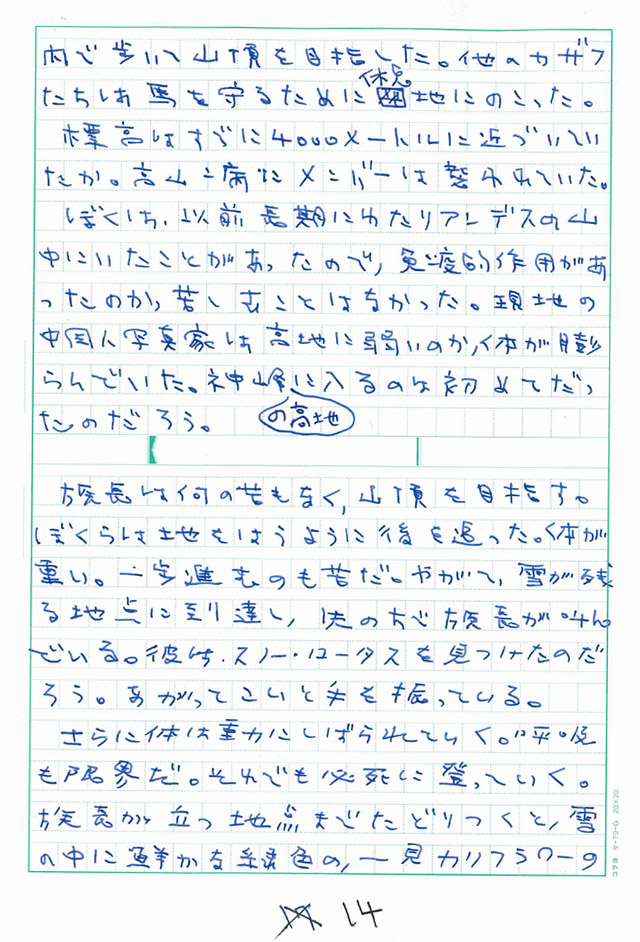 内で歩いて山頂を目指した。他のカザフ
たちは馬を守るために休憩地にのこった。
標高はすでに4000メートルに近づいてい
たか。高山病にメンバーは襲われていた。
ぼくは、以前長期にわたりアンデスの山
中にいたことがあったので、免疫的作用があ
ったのか、苦しむことはなかった。現地の
中国人写真家は高地に弱いのか、体が膨
らんでいた。神峰の高地に入るのは初めてだっ
たのだろう。
族長は何の苦もなく、山頂を目指す。
ぼくらは土地をはうように後を追った。体が
重い。一歩進むのも苦だ。やがて、雪が残
る地点に到達し、先の方で族長が叫ん
でいる。彼は、スノー・ロータスを見つけたのだ
ろう。あがってこいと手を振っている。
さらに体は重力にしばられていく。呼吸
も限界だ。それでも必死に登っていく。
族長が立つ地点までたどりつくと、雪
の中に鮮かな緑色の、一見カリフラワーの
14
コクヨ ケ-70-G 20×20